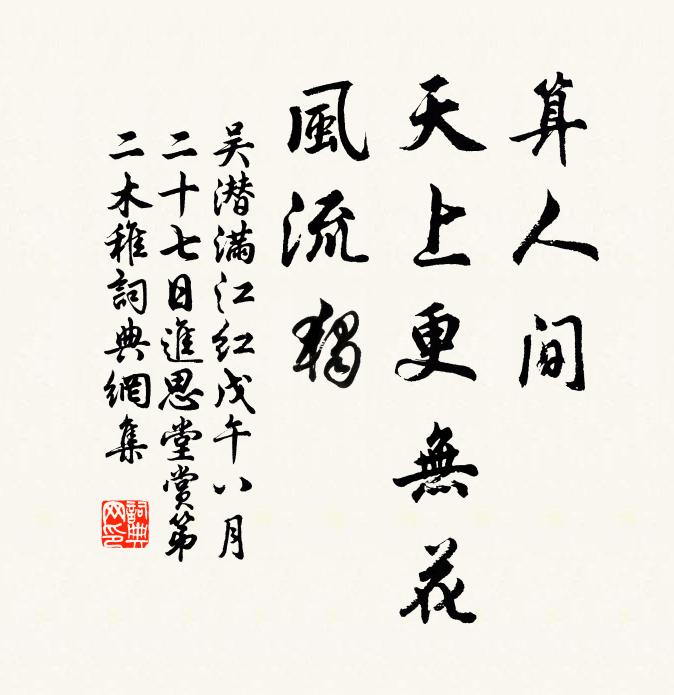 算人間
天上更無花
風流獨
吴潜滿江紅戊午八月
二十七日進思堂賞第
二木稚詞典網集
詞典网印